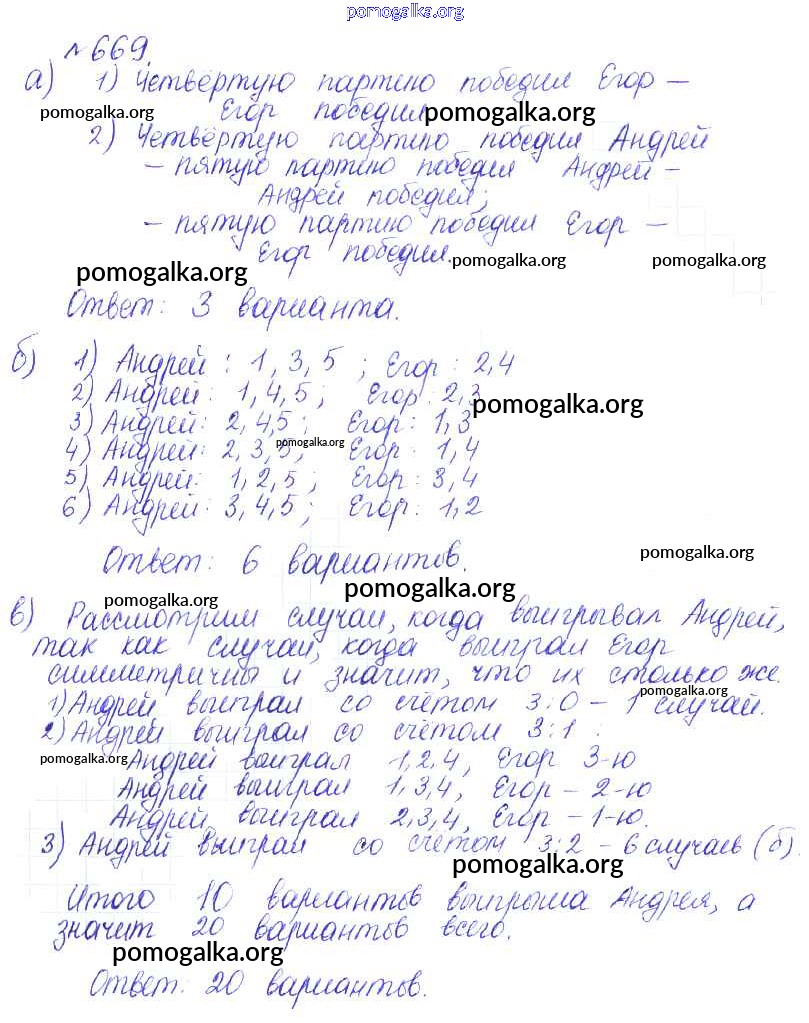 pomogalka.org
№669.
а) 1) Четвёртую партию победил Егор —
pomogalka.org Егор победил pomogalka.org
2) Четвёртую партию победил Андрей
– пятую партию победил Андрей –
Андрей победил;
– пятую партию победил Егор —
Егор победил. pomogalka.org pomogalka.org
pomogalka.org
Ответ: 3 варианта.
б) 1) Андрей: 1, 3, 5; Егор: 2,4
2) Андрей: 1,4,5; Егор: 2,3
pomogalka.org
3) Андрей: 2,4,5; Егор: 1,3
4) Андрей: 2,3,5; Егор: 1,4
pomogalka.org
5) Андрей: 1,2,5; Егор: 3,4
6) Андрей: 3,4,5; Егор: 1,2
Ответ: 6 вариантов.
pomogalka.org
pomogalka.org
pomogalka.org
в) Рассмотрим случаи, когда выигрывал Андрей,
так как случаи, когда выиграл Егор
симметричны и значит, что их столько же.
pomogalka.org
1) Андрей выиграл со счётом 3:0 – 1 случай.
2) Андрей выиграл со счётом 3:1 :
pomogalka.org Андрей выиграл 1,2,4, Егор 3-ю
Андрей выиграл 1,3,4, Егор – 2-ю
Андрей выиграл 2,3,4, Егор – 1-ю.
3) Андрей выиграл со счётом 3:2 – 6 случаев (б).
pomogalka.org
Итого 10 вариантов выигрыша Андрея, а
значит 20 вариантов всего.
pomogalka.org
Ответ: 20 вариантов.